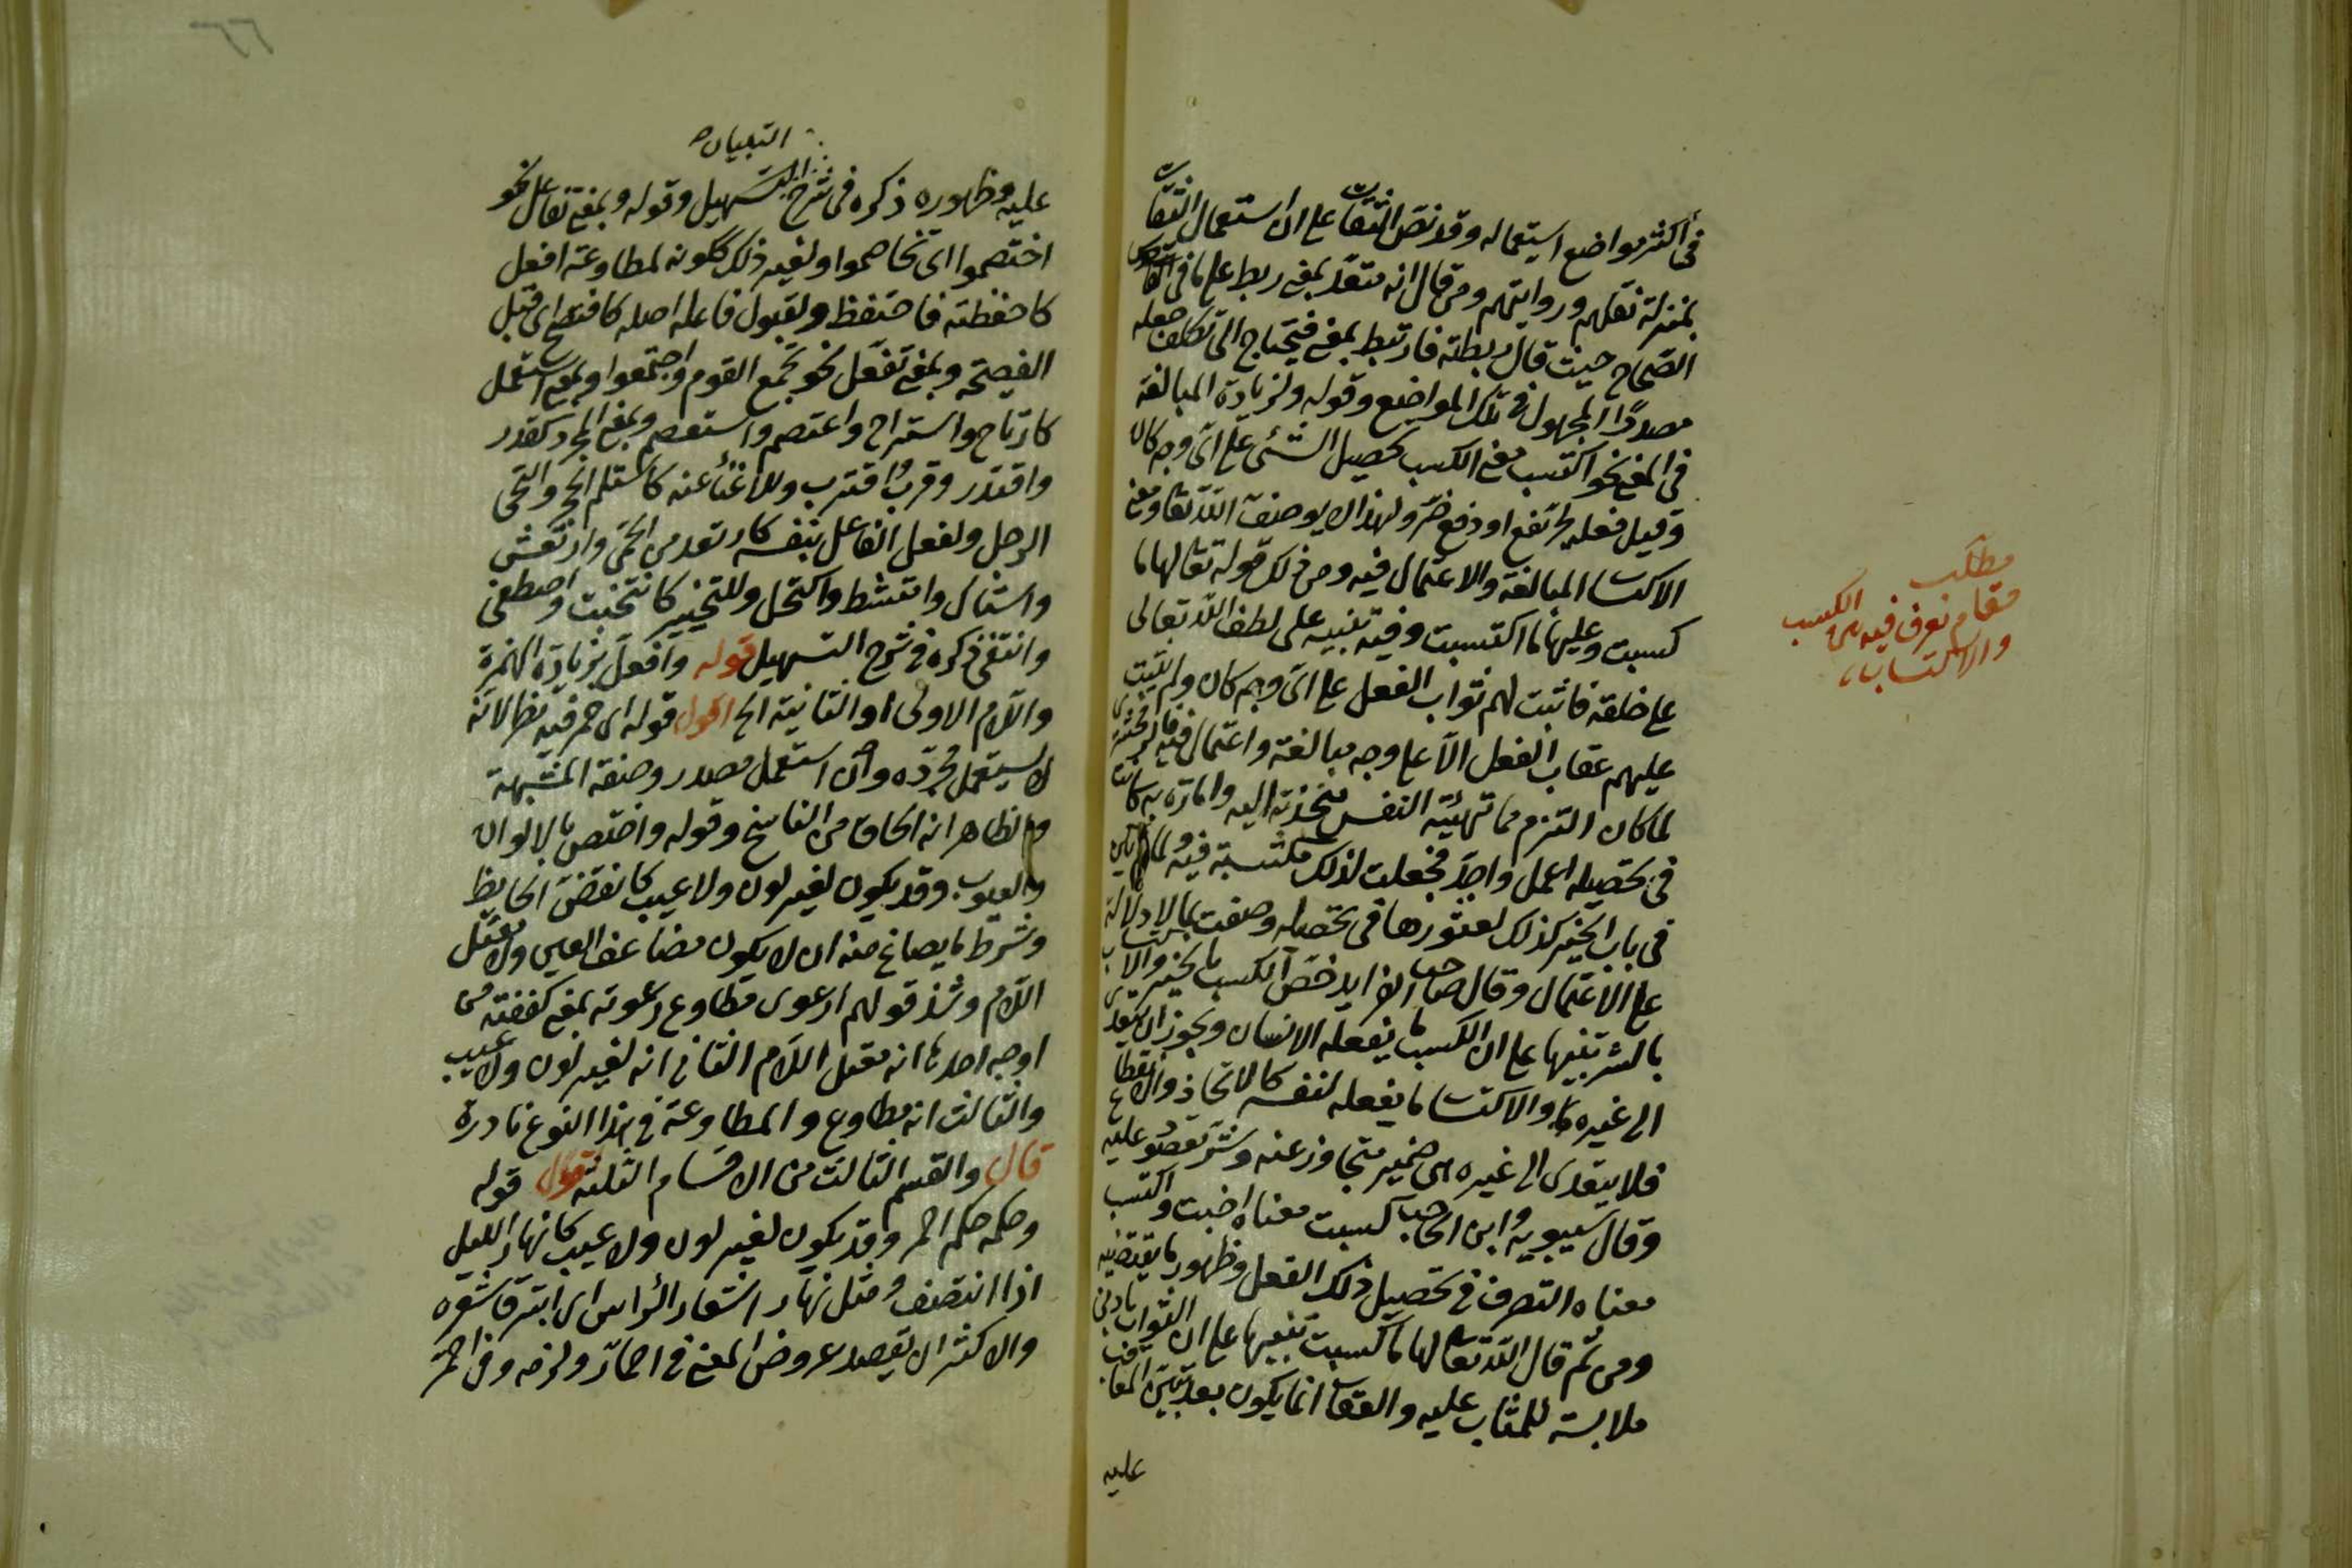 في أكثر مواضع استيعماله وقد نصّ الثقات على ان استعمال الثقات
بمنزلة نقلهم وروايتهم ومن قال انه متعدّ بمعنى ربط على ما في
الصّحاح حيث قال ربطته فارتبط بمعنى فيحتاج الى تكلف جعله
مصدرًا المجهول في تلك المواضع وقوله ولزيادة المبالغة
في المعنى نحو اكتسب معنى الكسب تحصيل الشئ على اىّ وجه كان
وقيل فعله لجرّ نفع او دفع ضرّ ولهذا لا يوصف اللّه تعا ومعنى
الاكتساب المبالغة والاعتمال فيه ومن ذلك قوله تعا لها ما
كسبت وعليها ما اكتسبت وفيه تنبيه على لطف اللّه تعالى
على خلقه فاثبت لهم ثواب الفعل على اىّ وجه كان ولم يثبت
عليهم عقاب الفعل الاّ على وجه مبالغة واعتمال فيه
لما كان الشر مما تهيئه النفس منجذبة اليه وامارة به كانت
في تحصيله اعمل واجدّ فجعلت لذلك مكتسبة فيه ولما
في باب الخير كذلك لفتورها في تحصيله وصفت بما لا دلالة
على الاعتمال وقال صاحب الفرايد خصّ الكسب بالخير والاكتساب
بالشر تنبيها على ان الكسب ما يفعله الانسان ويجوز ان يتعدى
الى غيره والاكتساب ما يفعله لنفسه كالاتخاذ والاقتطاع
فلا يتعدى الى غيره من خير متجاوز عنه وشرّ مقصور عليه
وقال سيبويه وابن الحاجب كسبت معناه اصبت واكتسب
معناه التصرف في تحصيل ذلك الفعل وظهور ما يقتضيه
ومن ثمّ قال اللّه تعا لها ما كسبت تنبيها على ان الثواب بادنى
ملابسة للمثاب عليه والعقاب انما يكون بعد تبيّن المعاقب
عليه
مطلب
مقام نعرف فيه من الكسب
والاكتساب
التبيان
عليه وظهوره ذكره في شرح التسهيل وقوله وبمعنى تفاعل نحو
اختصموا اى تخاصموا ولغير ذلك ككونه لمطاوعة افعل
كاحفظته فاحتفظ ولقبول فاعله اصله كافتصح اى قبل
الفصيحة وبمعنى تفعّل نحو تجمع القوم واجتمعوا وبمعنى استفعل
كارتاح واستراح واعتصم واستعصم وبمعنى المجرد كقدر
واقتدر وقرب واقترب وللاغناء عنه كاستلم الحجر والتحى
الرجل ولفعل الفاعل بنفسه كارتعد من الحمى وارتعش
واستاك وامتشط واكتحل وللتخيير كانتخبت واصطفى
وانتقى ذكره في شرح التسهيل قوله وافعلّ بزيادة الهمزة
واللام الاولى او الثانية الخ اقول قوله اى حمر فيه نظر لانه
لا يستعمل مجرّده وان استعمل مصدر وصفة المشبهة
والظاهر انه الحاق من الناسخ وقوله واختص بالالوان
والعيوب وقد يكون لغير لون ولا عيب كانقضّ الحايط
وشرط ما يصاغ منه ان لا يكون مضاعف العين ولا معتل
اللام وشذ قولهم ارعوى مطاوع رعوته بمعنى كففته من
اوجه احدها انه معتل اللام الثاني انه لغير لون ولا عيب
والثالث انه مطاوع والمطاوعة في هذا النوع نادرة
قال والقسم الثالث من الاقسام الثلثة اقول قوله
وحكمه حكم احمر وقد يكون لغير لون ولا عيب كابهارّ الليل
اذا انتصف ومثل بهارّ اشعارّ الرأس اى ابترق شعره
والاكثر ان يقصد عروض المعنى في احمارّ ولزمه وفي احمرّ